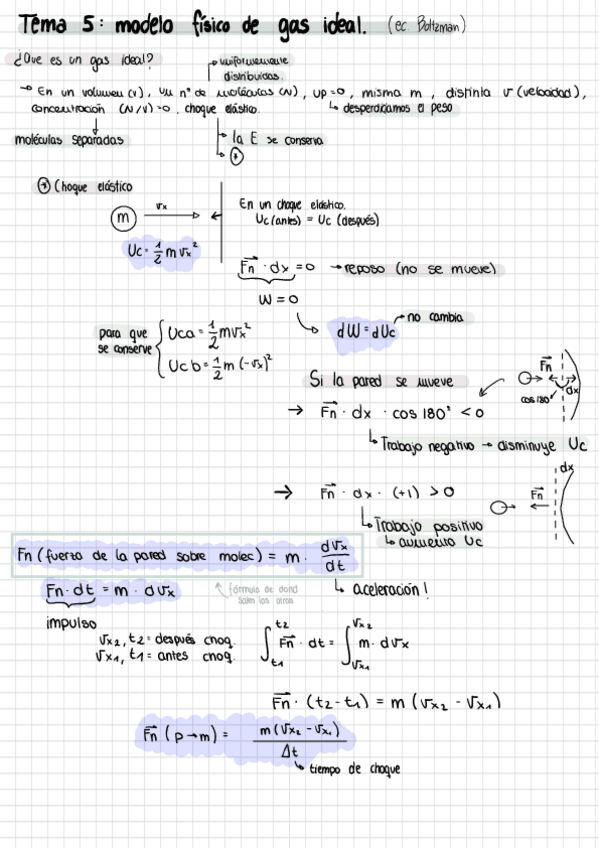 Tema 5: modelo físico de gas ideal. (ec. Boltzman)
¿Que es un gas ideal?
uniformemente
distribuidas.
→ En un volumen (V), un nº de moléculas (N), Up=0, misma m, distinta v (velocidad),
concentración (N/V)→0, choque elástico.
↳ desperdiciamos el peso
moléculas separadas
↳ la E se conserva
↳ *
* Choque elástico
m vx
En un choque elástico.
Uc (antes) = Uc (después)
Uc = 1/2 m vx²
Fn · dx = 0 → reposo (no se mueve)
W = 0
no cambia
dW = dUc
para que
se conserve
Uca = 1/2 m vx²
Ucb = 1/2 m (-vx)²
Si la pared se mueve
Fn
dx
cos 180°
→ Fn · dx · cos 180° < 0
↳ Trabajo negativo → disminuye Uc
dx
Fn
→ Fn · dx · (+1) > 0
↳ Trabajo positivo
↳ aumenta Uc
Fn (fuerza de la pared sobre molec) = m · dvx/dt
↳ aceleración!
Fn · dt = m · dvx
fórmula de dond
salen los otros
impulso
vx2, t2 = después choq.
vx1, t1 = antes choq.
∫t1 t2 Fn · dt = ∫vx1 vx2 m · dvx
Fn · (t2 - t1) = m (vx2 - vx1)
Fn (p→m) = m (vx2 - vx1) / Δt
↳ tiempo de choque